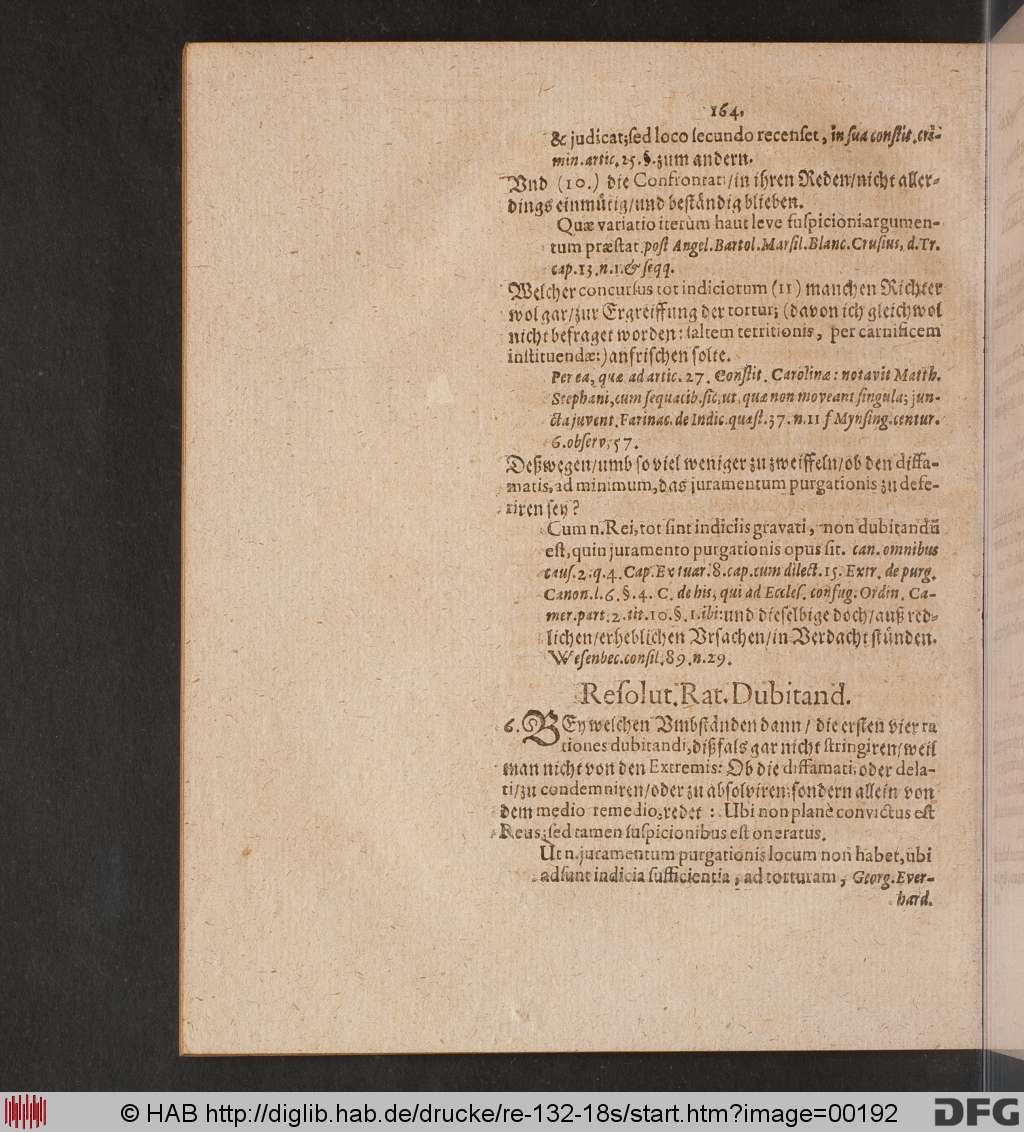 164.
& judicat; sed loco secundo recenset, in sua constit. cri-
min. artic. 25. §. zum andern.
Vnd (10.) die Confrontati/in ihren Reden/nicht aller-
dings einmütig/und beständig blieben.
Quæ variatio iterùm haut leve suspicioni argumen-
tum præstat. post Angel. Bartol. Marsil. Blanc. Crusius, d. Tr.
cap. 13. n. 1. & seqq.
Welcher concursus tot indiciorum (11) manchen Richter
wol gar/zur Ergreiffung der tortur; (davon ich gleichwol
nicht befraget worden: saltem territionis, per carnificem
instituendæ:) anfrischen solte.
Per ea, quæ ad artic. 27. Constit. Carolinæ: notavit Matth.
Stephani, cum sequacib. sic, ut, quæ non moveant singula; jun-
cta juvent. Farinac. de Indic. quæst. 37. n. 11 s Mynsing. centur.
6. observ. 57.
Deßwegen/umb so viel weniger zu zweiffeln/ob den diffa-
matis, ad minimum, das juramentum purgationis zu defe-
riren sey?
Cum n. Rei, tot sint indiciis gravati, non dubitandū
est, quin juramento purgationis opus sit. can. omnibus
caus. 2. q. 4. Cap. Ex tuar. 8. cap. cum dilect. 15. Extr. de purg.
Canon. l. 6. §. 4. C. de his, qui ad Eccles. confug. Ordin. Ca-
mer. part. 2. tit. 10. §. 1. ibi: und dieselbige doch/auß red-
lichen/erheblichen Vrsachen/in Verdacht stünden.
Wesenbec. consil. 89. n. 29.
Resolut. Rat. Dubitand.
6. BEy welchen Vmbständen dann/ die ersten vier ra
tiones dubitandi, dißfals gar nicht stringiren/weil
man nicht von den Extremis: Ob die diffamati, oder dela-
ti/zu condemniren/oder zu absolviren; sondern allein von
dem medio remedio, redet: Ubi non planè convictus est
Reus; sed tamen suspicionibus est oneratus.
Ut n. juramentum purgationis locum non habet, ubi
adsunt indicia sufficientia, ad torturam, Georg. Ever-
hard.
© HAB http://diglib.hab.de/drucke/re-132-18s/start.htm?image=00192
DFG